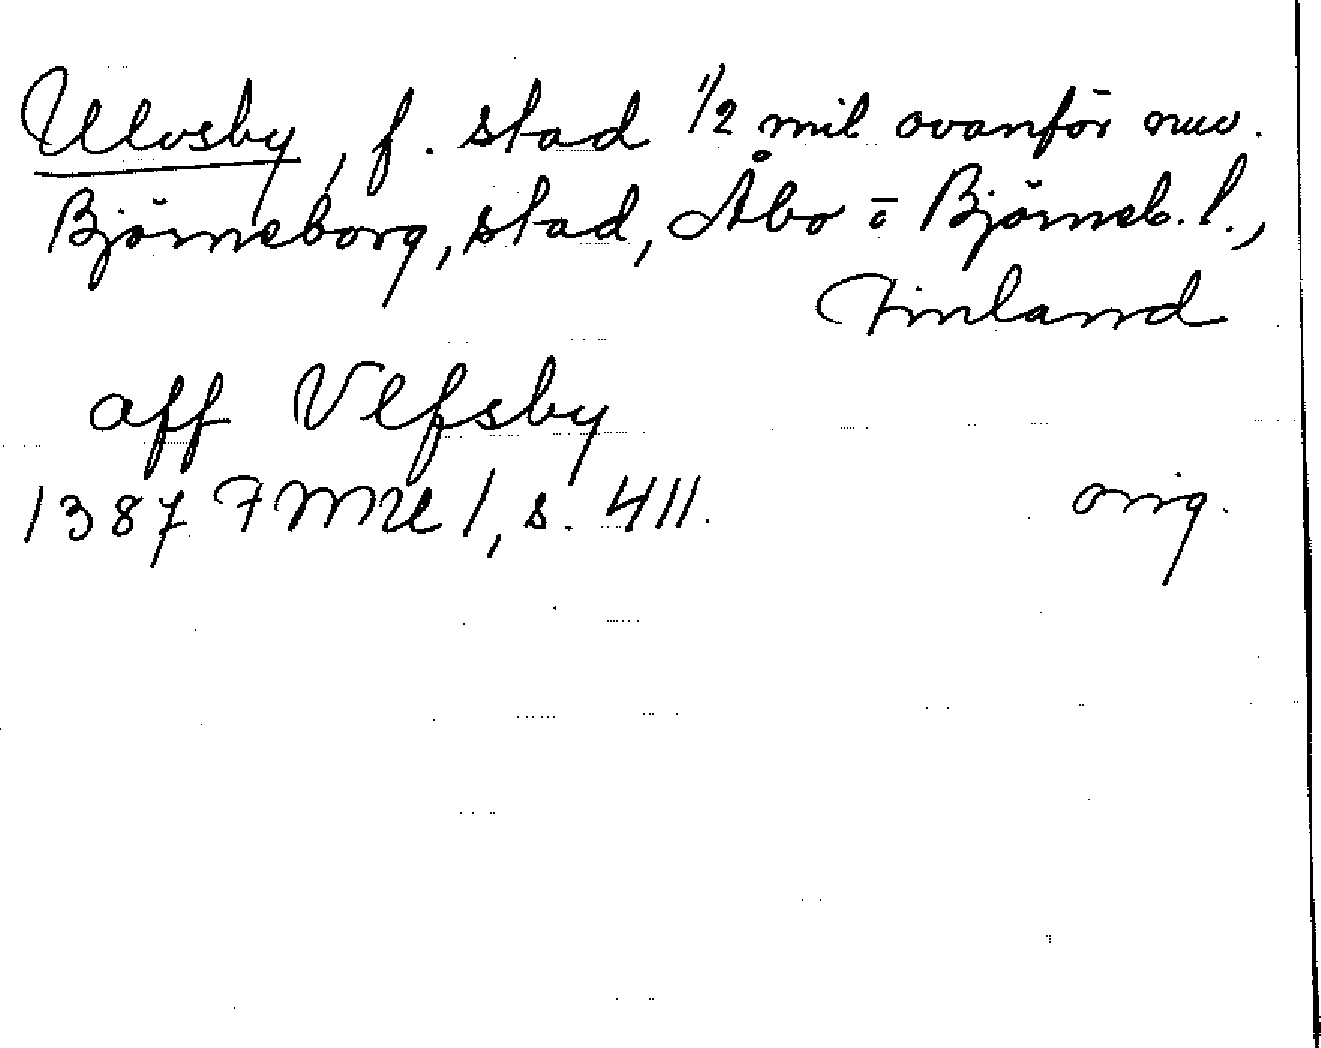 Ulvsby, f. stad 1/2 mil ovanför nuv.
Björneborg, stad, Åbo o Björneb. l.,
Finland
aff Vlfsby
1387 FMU 1, s. 411.
orig.